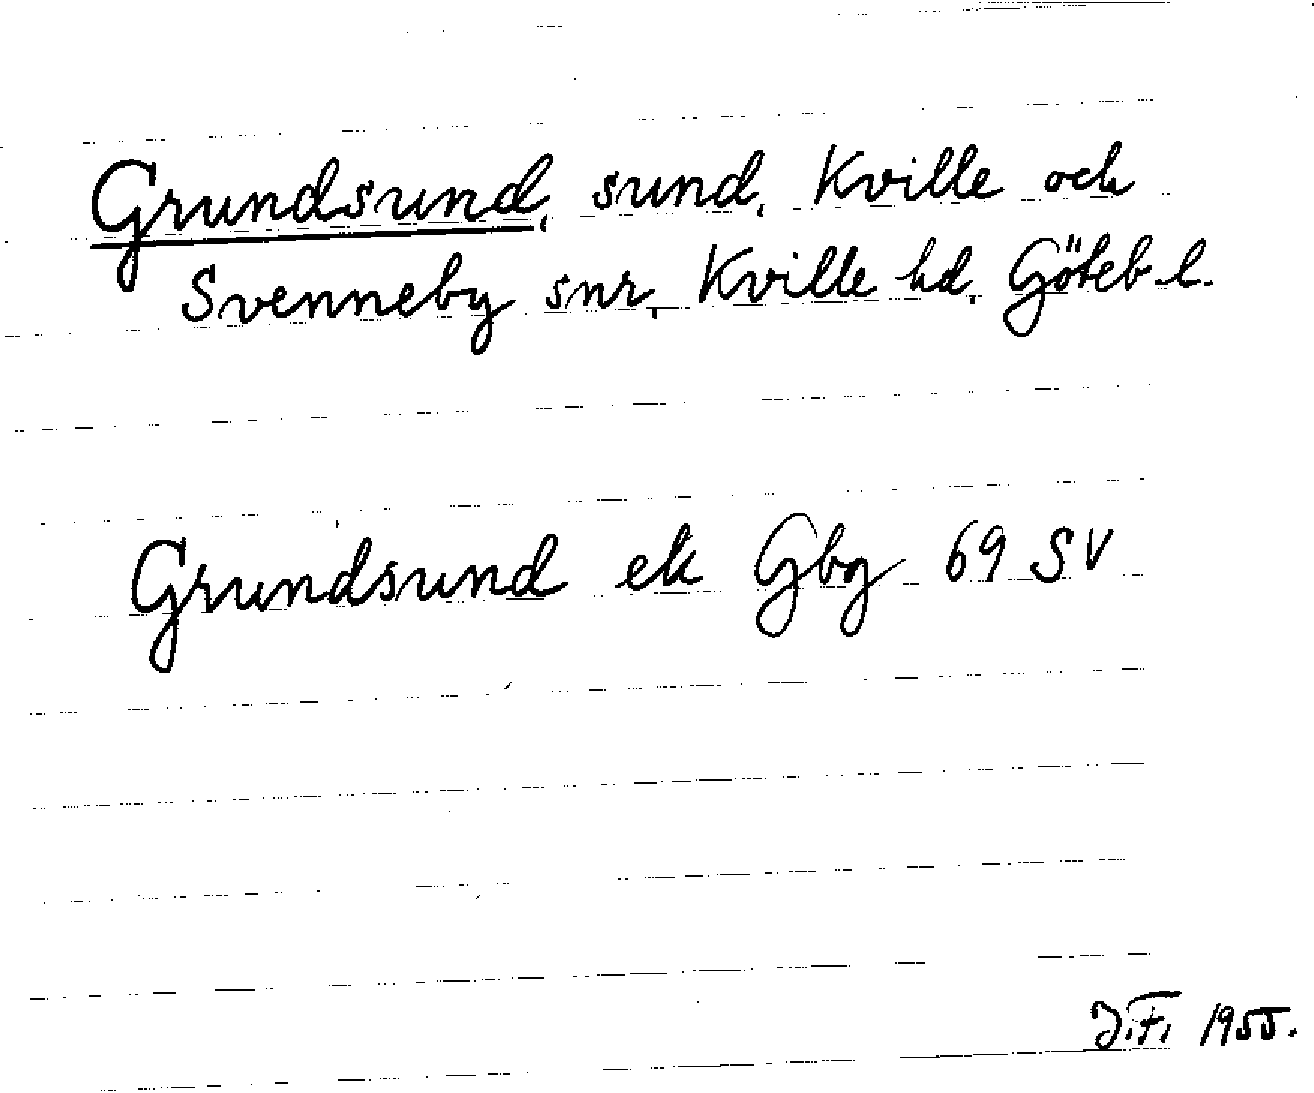 Grundsund, sund, Kville och
Svenneby snr, Kville hd, Göteb. l.
Grundsund ek Gbg 69 SV
J.F. 1955.